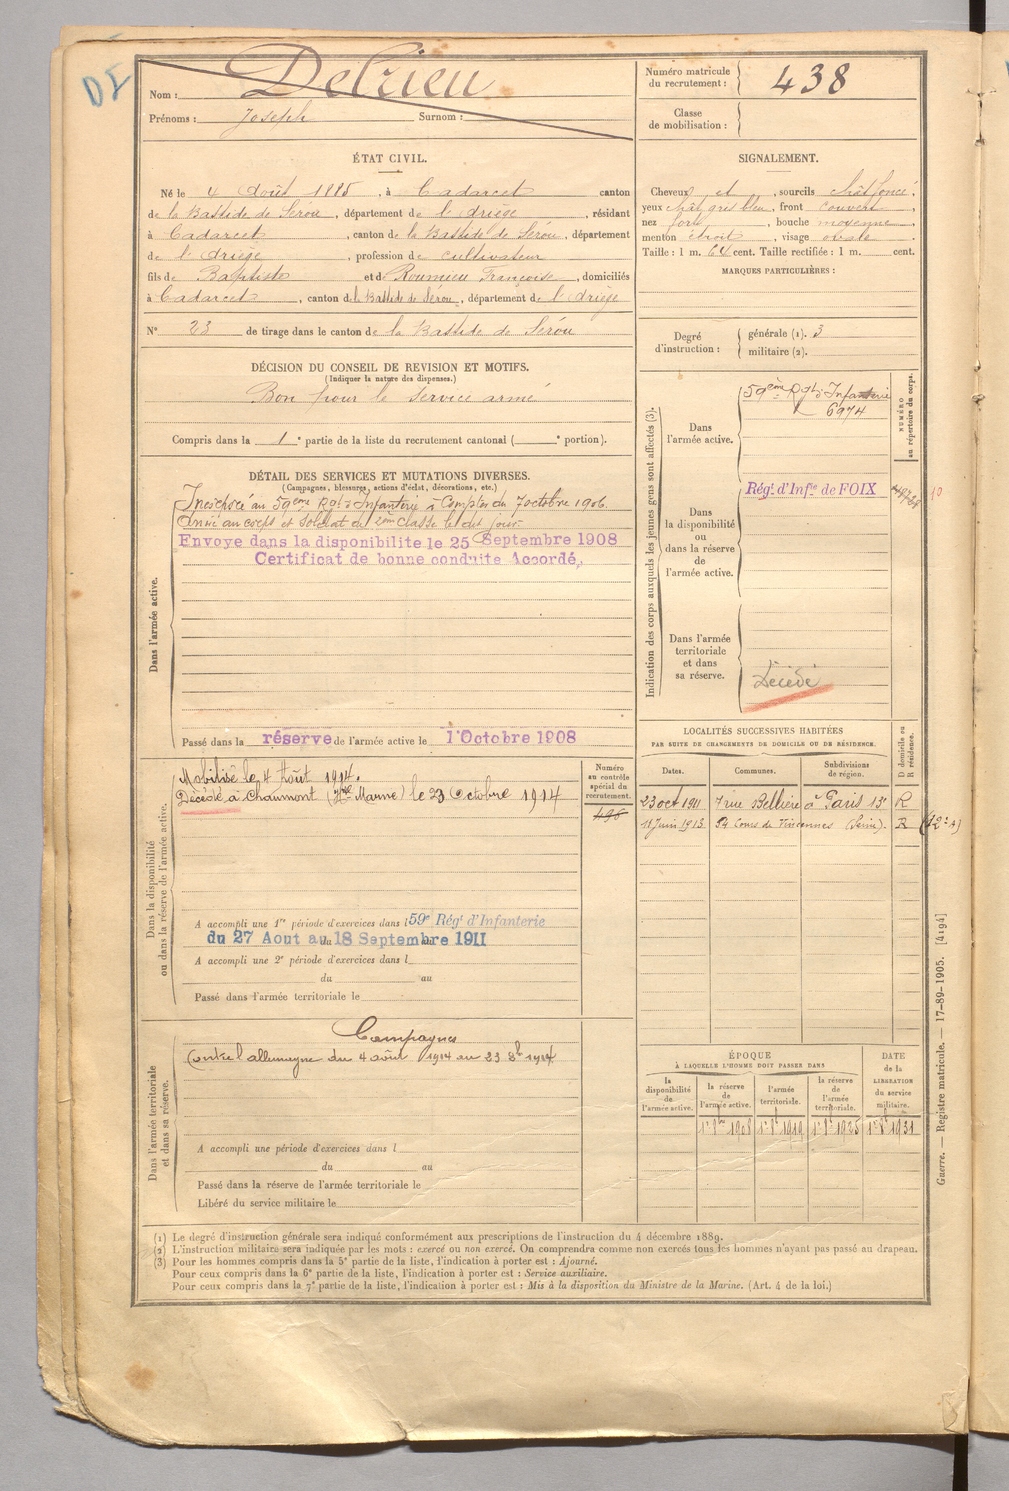 DÉ
Nom : Delrieu
Prénoms : Joseph Surnom :
Numéro matricule
du recrutement : 438
Classe
de mobilisation :
ÉTAT CIVIL.
Né le 4 Août 1885, à Cadarcet canton
de la Bastide de Sérou, département de l'Ariège, résidant
à Cadarcet, canton de la Bastide de Sérou, département
de l'Ariège, profession de cultivateur
fils de Baptiste et de Roumieu Françoise, domiciliés
à Cadarcet, canton de la Bastide de Sérou, département de l'Ariège
N° 23 de tirage dans le canton de la Bastide de Sérou
SIGNALEMENT.
Cheveux et, sourcils chât foncé,
yeux chât gris bleu, front couvert
nez fort, bouche moyenne,
menton étroit, visage ovale
Taille : 1 m. 64 cent. Taille rectifiée : 1 m. cent.
MARQUES PARTICULIÈRES :
Degré
d'instruction :
générale (1). 3
militaire (2).
DÉCISION DU CONSEIL DE REVISION ET MOTIFS.
(Indiquer la nature des dispenses.)
Bon pour le service armé
Compris dans la 1e partie de la liste du recrutement cantonal ( e portion).
DÉTAIL DES SERVICES ET MUTATIONS DIVERSES.
(Campagnes, blessures, actions d'éclat, décorations, etc.)
Dans l'armée active.
Incorporé au 59ème Rgt d'Infanterie à Compter du 7 octobre 1906.
Arrivé au corps et soldat de 2ème classe le dit jour.
Envoye dans la disponibilite le 25 Septembre 1908
Certificat de bonne conduite Accordé,
Passé dans la réserve de l'armée active le 1 Octobre 1908
Indication des corps auxquels les jeunes gens sont affectés (3).
NUMÉRO
au répertoire du corps.
Dans
l'armée active.
59ème Rgt d'Infanterie
6974
Dans
la disponibilité
ou
dans la réserve
de
l'armée active.
Régt d'Infie de FOIX
10
Dans l'armée
territoriale
et dans
sa réserve.
Décédé
Dans la disponibilité
ou dans la réserve de l'armée active.
Mobilisé le 4 Août 1914.
Décédé à Chaumont (Hte Marne) le 23 Octobre 1914
Numéro
au contrôle
spécial du
recrutement.
496
A accompli une 1re période d'exercices dans l 59e Régt d'Infanterie
du 27 Aout au 18 Septembre 1911
A accompli une 2e période d'exercices dans l
du au
Passé dans l'armée territoriale le
LOCALITÉS SUCCESSIVES HABITÉES
PAR SUITE DE CHANGEMENTS DE DOMICILE OU DE RÉSIDENCE.
D domicile ou
R résidence.
Dates. Communes. Subdivisions
de région.
23 oct 1911 7 rue Bellière à Paris 13e R
11 Juin 1913 54 Cours de Vincennes (Seine). R
Dans l'armée territoriale
et dans sa réserve.
Campagnes
Contre l'allemagne du 4 août 1914 au 23 8bre 1914
A accompli une période d'exercices dans l
du au
Passé dans la réserve de l'armée territoriale le
Libéré du service militaire le
ÉPOQUE
À LAQUELLE L'HOMME DOIT PASSER DANS
DATE
de la
LIBÉRATION
du service
militaire.
la
disponibilité
de
l'armée active.
la réserve
de
l'armée active.
l'armée
territoriale.
la réserve
de
l'armée
territoriale.
1er 8bre 1908 1er 8bre 1919 1er 8bre 1925 1er 8bre 1931
Guerre. — Registre matricule. — 17-89-1905. [4194]
(1) Le degré d'instruction générale sera indiqué conformément aux prescriptions de l'instruction du 4 décembre 1889.
(2) L'instruction militaire sera indiquée par les mots : exercé ou non exercé. On comprendra comme non exercés tous les hommes n'ayant pas passé au drapeau.
(3) Pour les hommes compris dans la 5e partie de la liste, l'indication à porter est : Ajourné.
Pour ceux compris dans la 6e partie de la liste, l'indication à porter est : Service auxiliaire.
Pour ceux compris dans la 7e partie de la liste, l'indication à porter est : Mis à la disposition du Ministre de la Marine. (Art. 4 de la loi.)